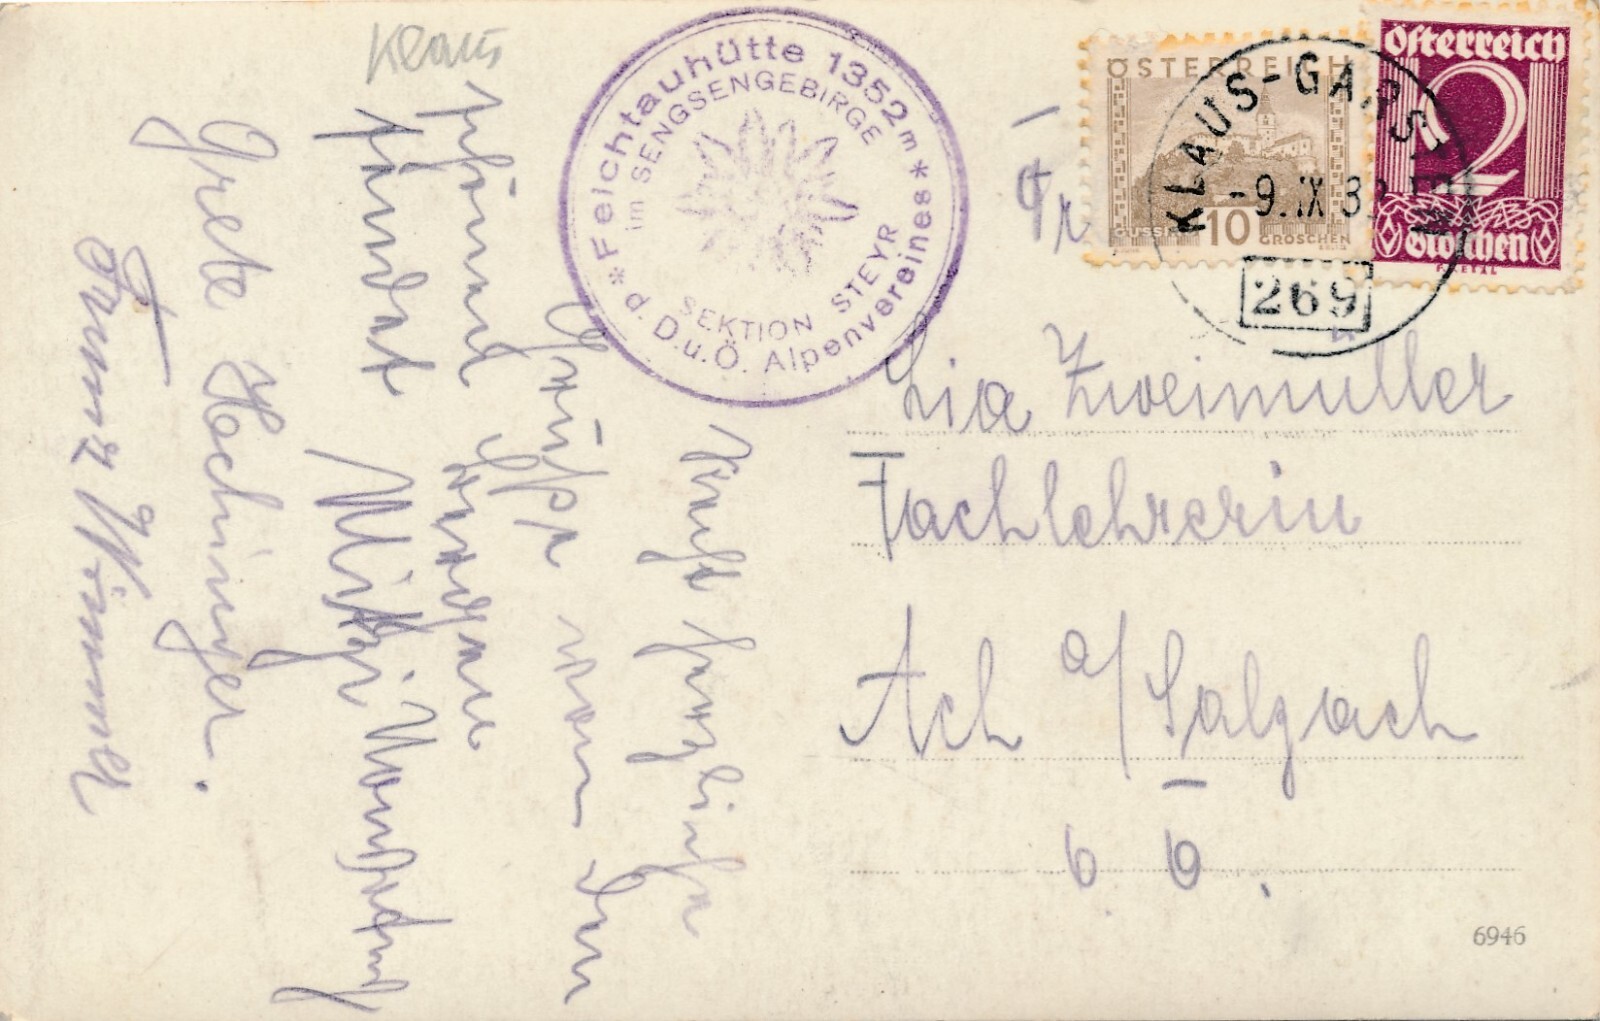 Klaus
Feichtauhütte 1352m
im SENGSENGEBIRGE
SEKTION STEYR
d. D.u.Ö. Alpenvereines
ÖSTERREICH
10
GROSCHEN
Österreich
2
Groschen
KLAUS-GARSTEN
-9.IX.3
269
Recht herzliche
Grüße von den
schönen
sendet Mitzi
Grete Hochinger.
Franz Wimmer
Lia Zweimüller
Fachlehrerin
Ach a/Salzach
O. Ö.
6946